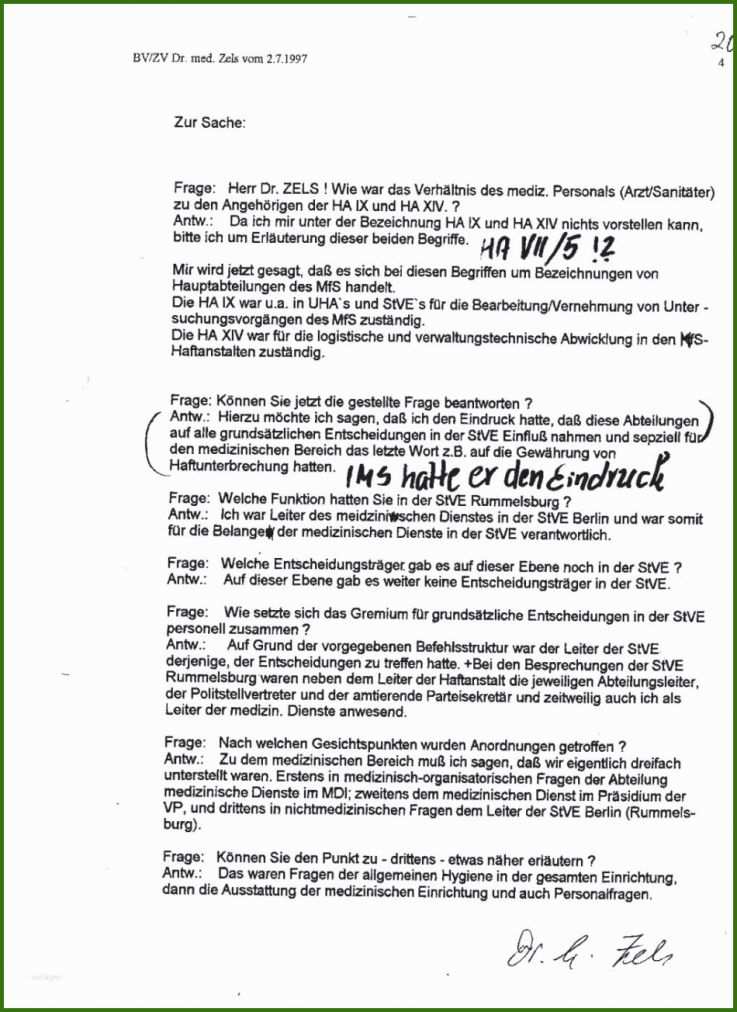 20
BV/ZV Dr. med. Zels vom 2.7.1997
4
Zur Sache:
Frage: Herr Dr. ZELS ! Wie war das Verhältnis des mediz. Personals (Arzt/Sanitäter)
zu den Angehörigen der HA IX und HA XIV. ?
Antw.: Da ich mir unter der Bezeichnung HA IX und HA XIV nichts vorstellen kann,
bitte ich um Erläuterung dieser beiden Begriffe. HA VII/5 !?
Mir wird jetzt gesagt, daß es sich bei diesen Begriffen um Bezeichnungen von
Hauptabteilungen des MfS handelt.
Die HA IX war u.a. in UHA`s und StVE`s für die Bearbeitung/Vernehmung von Unter -
suchungsvorgängen des MfS zuständig.
Die HA XIV war für die logistische und verwaltungstechnische Abwicklung in den MfS-
Haftanstalten zuständig.
Frage: Können Sie jetzt die gestellte Frage beantworten ?
Antw.: Hierzu möchte ich sagen, daß ich den Eindruck hatte, daß diese Abteilungen
auf alle grundsätzlichen Entscheidungen in der StVE Einfluß nahmen und sepziell für
den medizinischen Bereich das letzte Wort z.B. auf die Gewährung von
Haftunterbrechung hatten. IMS hatte er den Eindruck
Frage: Welche Funktion hatten Sie in der StVE Rummelsburg ?
Antw.: Ich war Leiter des meidzinischen Dienstes in der StVE Berlin und war somit
für die Belange der medizinischen Dienste in der StVE verantwortlich.
Frage: Welche Entscheidungsträger gab es auf dieser Ebene noch in der StVE ?
Antw.: Auf dieser Ebene gab es weiter keine Entscheidungsträger in der StVE.
Frage: Wie setzte sich das Gremium für grundsätzliche Entscheidungen in der StVE
personell zusammen ?
Antw.: Auf Grund der vorgegebenen Befehlsstruktur war der Leiter der StVE
derjenige, der Entscheidungen zu treffen hatte. +Bei den Besprechungen der StVE
Rummelsburg waren neben dem Leiter der Haftanstalt die jeweiligen Abteilungsleiter,
der Politstellvertreter und der amtierende Parteisekretär und zeitweilig auch ich als
Leiter der medizin. Dienste anwesend.
Frage: Nach welchen Gesichtspunkten wurden Anordnungen getroffen ?
Antw.: Zu dem medizinischen Bereich muß ich sagen, daß wir eigentlich dreifach
unterstellt waren. Erstens in medizinisch-organisatorischen Fragen der Abteilung
medizinische Dienste im MDI; zweitens dem medizinischen Dienst im Präsidium der
VP, und drittens in nichtmedizinischen Fragen dem Leiter der StVE Berlin (Rummels-
burg).
Frage: Können Sie den Punkt zu - drittens - etwas näher erläutern ?
Antw.: Das waren Fragen der allgemeinen Hygiene in der gesamten Einrichtung,
dann die Ausstattung der medizinischen Einrichtung und auch Personalfragen.
Dr. G. Zels